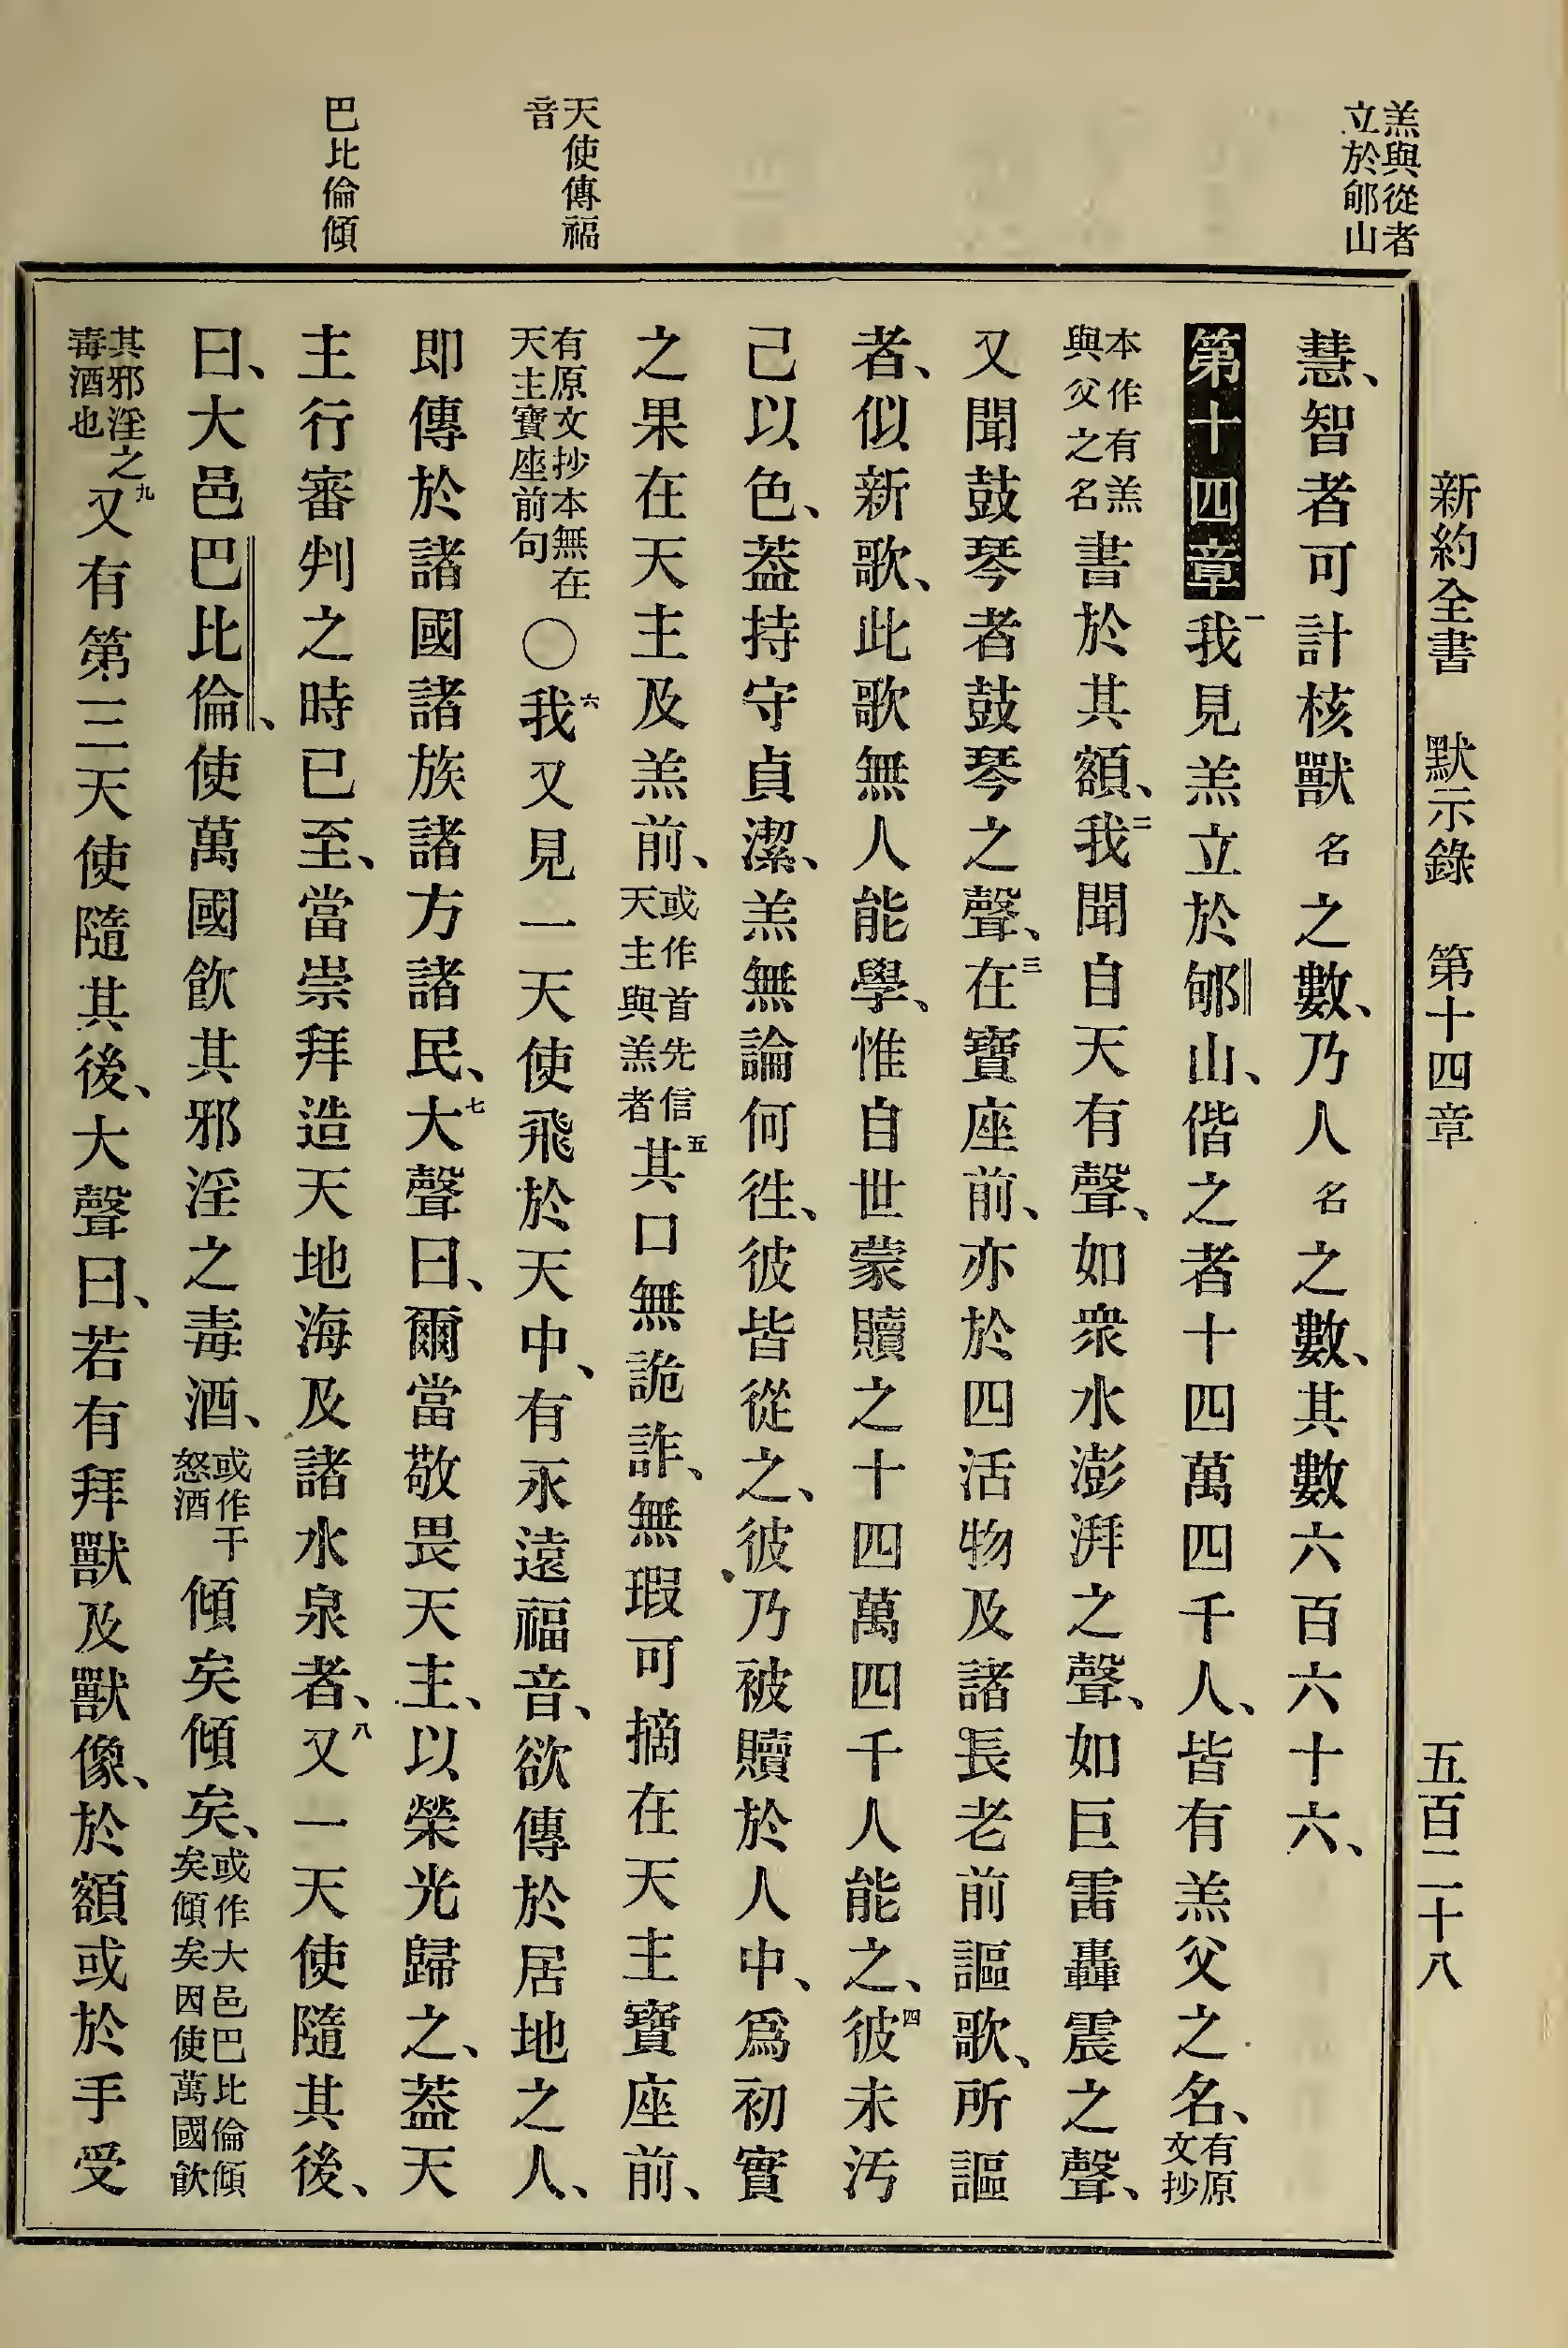 新約全書 默示錄 第十四章 五百二十八
羔與從者
立於郇山
天使傳福
音
巴比倫傾
慧、智者可計核獸名之數、乃人名之數、其數六百六十六、
第十四章 一我見羔立於郇山、偕之者十四萬四千人、皆有羔父之名、有原文抄
本作有羔與父之名書於其額、二我聞自天有聲、如衆水澎湃之聲、如巨雷轟震之聲、
又聞鼓琴者鼓琴之聲、三在寶座前、亦於四活物及諸長老前謳歌、所謳
者、似新歌、此歌無人能學、惟自世蒙贖之十四萬四千人能之、四彼未汚
己以色、蓋持守貞潔、羔無論何往、彼皆從之、彼乃被贖於人中、爲初實
之果在天主及羔前、或作首先信天主與羔者五其口無詭詐、無瑕可摘在天主寶座前、
有原文抄本無在天主寶座前句〇六我又見一天使飛於天中、有永遠福音、欲傳於居地之人、
即傳於諸國諸族諸方諸民、七大聲曰、爾當敬畏天主、以榮光歸之、蓋天
主行審判之時已至、當崇拜造天地海及諸水泉者、八又一天使隨其後、
曰、大邑巴比倫、使萬國飮其邪淫之毒酒、或作干怒酒傾矣傾矣、或作大邑巴比倫傾矣傾矣因使萬國飮
其邪淫之毒酒也九又有第三天使隨其後、大聲曰、若有拜獸及獸像、於額或於手受